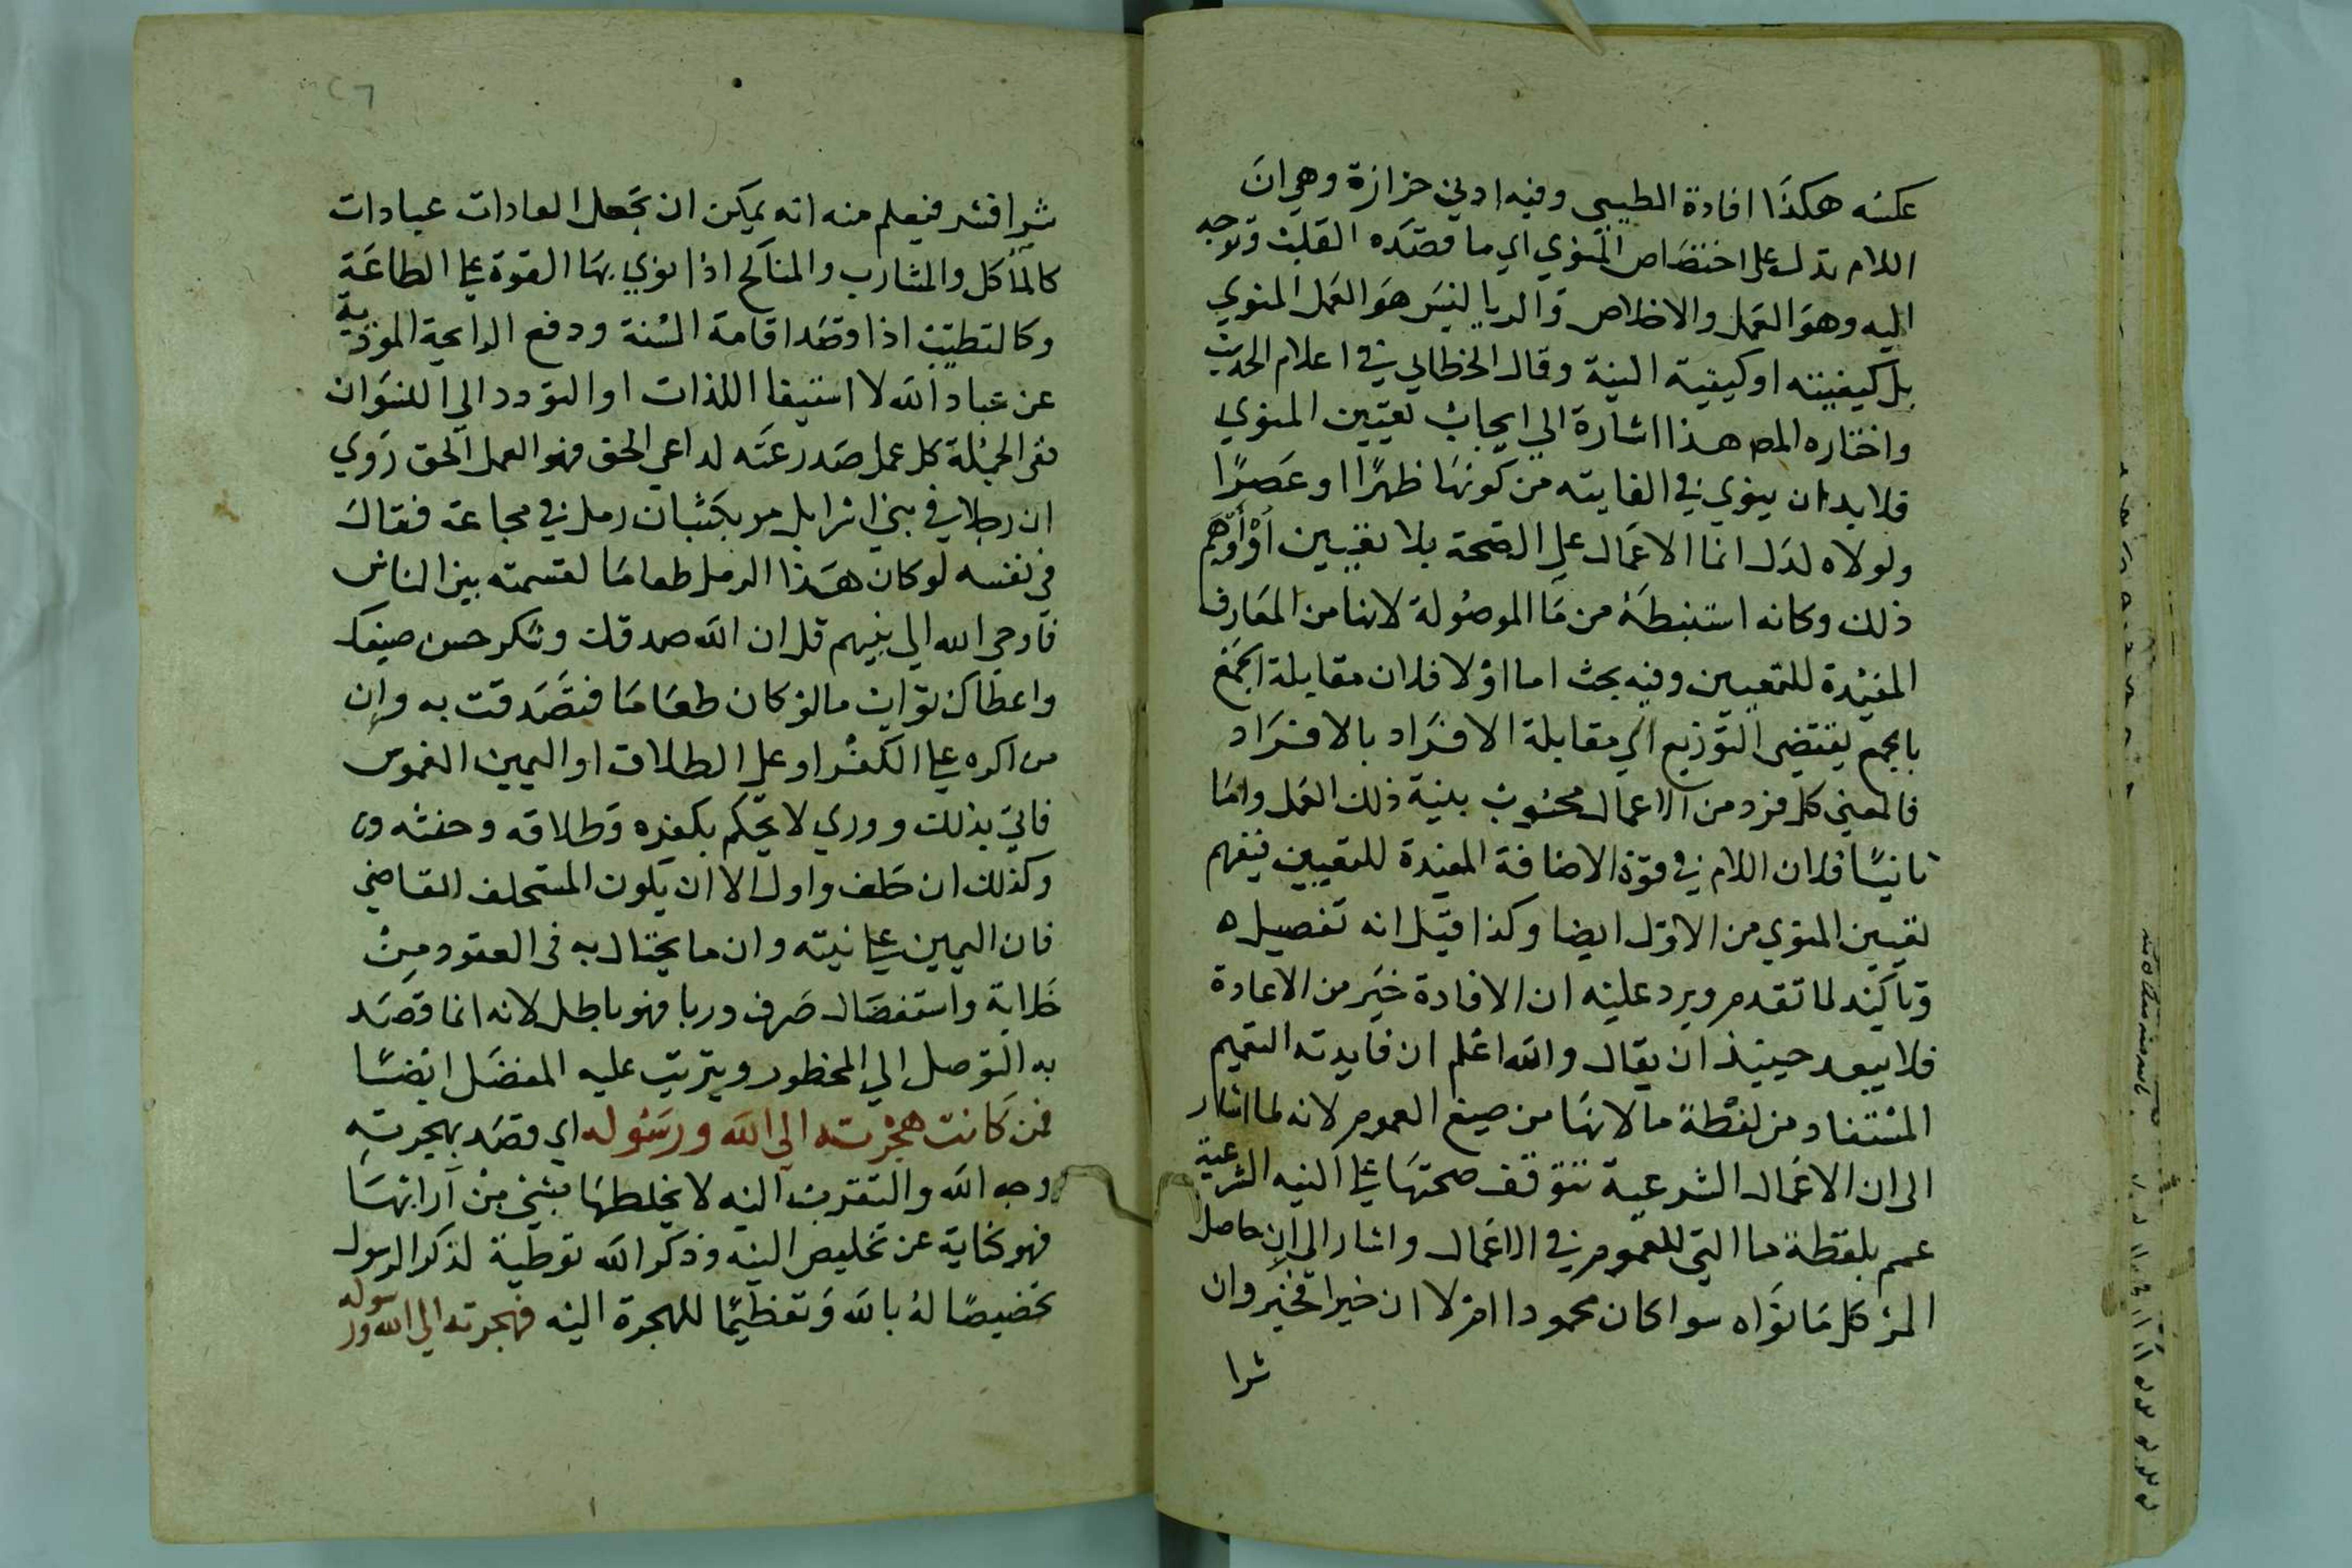 عكسه هكذا افادة الطيبي وفيه ادني حزازة وهي ان
اللام تدل على اختصاص المنوي اي ما قصده القلب وتوجه
اليه وهو العمل والاخلاص والريا ليس هو العمل المنوي
بل كيفيته او كيفية النية وقال الخطابي في اعلام الحديث
واختاره المص هذا اشارة الي ايجاب تعيين المنوي
فلا بد ان ينوي في الفايته من كونها ظهرًا او عصرًا
ولولاه لدل انما الاعمال على الصحة بلا تعيين او اوهم
ذلك وكانه استنبطه من ما الموصولة لانها من المعارف
المفيدة للتعيين وفيه بحث اما اولا فلان مقابلة الجمع
بالجمع يقتضي التوزيع اي مقابلة الافراد بالافراد
فالمعني كل فرد من الاعمال محسوب بنية ذلك العمل واما
ثانيًا فلان اللام في قوة الاضافة المفيدة للتعيين فيفهم
تعيين المنوي من الاول ايضا وكذا قيل انه تفصيله
وتاكيد لما تقدم ويرد عليه ان الافادة خير من الاعادة
فلا يبعد حينيذ ان يقال والله اعلم ان فايدته التعميم
المستفاد من لفظة ما لانها من صيغ العموم لانه لما اشار
الى ان الاعمال الشرعية تتوقف صحتها على النيه الشرعية
عمم بلفظة ما التي للعموم في الاعمال واشار الى ان حاصل
المرء كل ما نواه سوا كان محمودا ام لا ان خيرا فخير وان
شرا
٢٦
شرا فشر فيعلم منه انه يمكن ان تجعل العادات عبادات
كالمآكل والمشارب والمناكح اذا نوي بها القوة على الطاعة
وكالتطيب اذا قصد اقامة السنة ودفع الرايحة الموذية
عن عباد الله لا استيفا اللذات او التودد الي النسوان
ففي الجملة كل عمل صدر عنه لداعي الحق فهو العمل الحق روي
ان رجلا في بني اسرايل مر بكثبان رمل في مجاعة فقال
في نفسه لو كان هذا الرمل طعامًا لقسمته بين الناس
فاوحي الله الي نبيهم قل ان الله صدقك وشكر حسن صنيعك
واعطاك ثواب ما لو كان طعامًا فتصدقت به وان
من اكره على الكفر او على الطلاق او اليمين الغموس
فاتي بذلك ووري لا يحكم بكفره وطلاقه وحنثه
وكذلك ان حلف واول الا ان يكون المستحلف القاضي
فان اليمين على نيته وان ما يحتال به في العقود من
خلابة واستفضال صرف وربا فهو باطل لانه انما قصد
به التوصل الي المحظور ويترتب عليه المفصل ايضًا
فمن كانت هجرته الى الله ورسوله اي قصد بهجرته
وجه الله والتقرب اليه لا يخلطها بشي من ارابها
فهو كناية عن تخليص النيه وذكر الله توطية لذكر الرسول
تخصيصًا له بالله وتعظيمًا للهجرة اليه فهجرته الي الله ورسوله